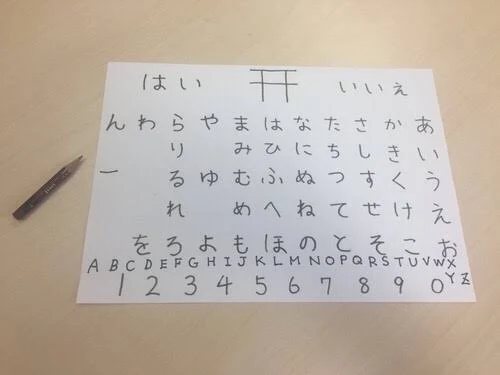 はい いいえ
あいうえお
かきくけこ
さしすせそ
たちつてと
なにぬねの
はひふへほ
まみむめも
やゆよ
らりるれろ
わを
んー
A B C D E F G H I J K L M N O P Q R S T U V W X Y Z
1 2 3 4 5 6 7 8 9 0